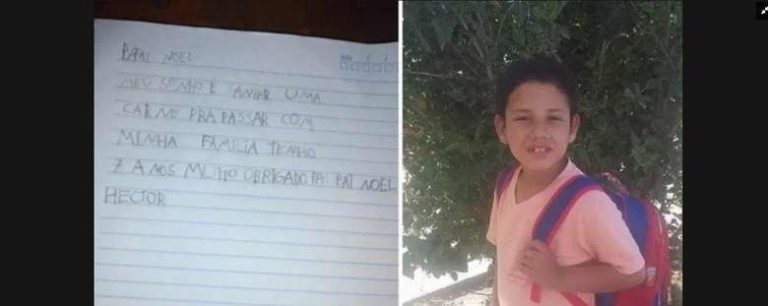 PAPAI NOEL
MEU SONHO É GANHAR UMA
CARNE PRA PASSAR COM
MINHA FAMILIA TENHO
7 ANOS MUITO OBRIGADO PA PAI NOEL
HECTOR